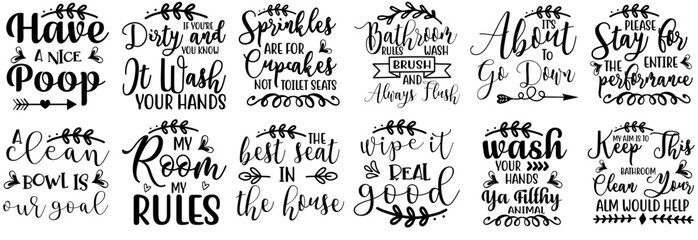 Have
A NICE
Poop
IF YOU'RE
Dirty and
YOU KNOW
It Wash
YOUR HANDS
Sprinkles
ARE FOR
Cupcakes
NOT TOILET SEATS
Bathroom
RULES WASH
BRUSH
AND
Always Flush
IT'S
About
TO
Go Down
PLEASE
Stay for
THE ENTIRE
performance
A
clean
BOWL IS
our goal
MY
Room
MY
RULES
THE
best seat
IN
the house
wipe it
REAL
good
wash
YOUR
HANDS
Ya Filthy
ANIMAL
MY AIM IS TO
Keep This
BATHROOM
Clean Your
ALM WOULD HELP